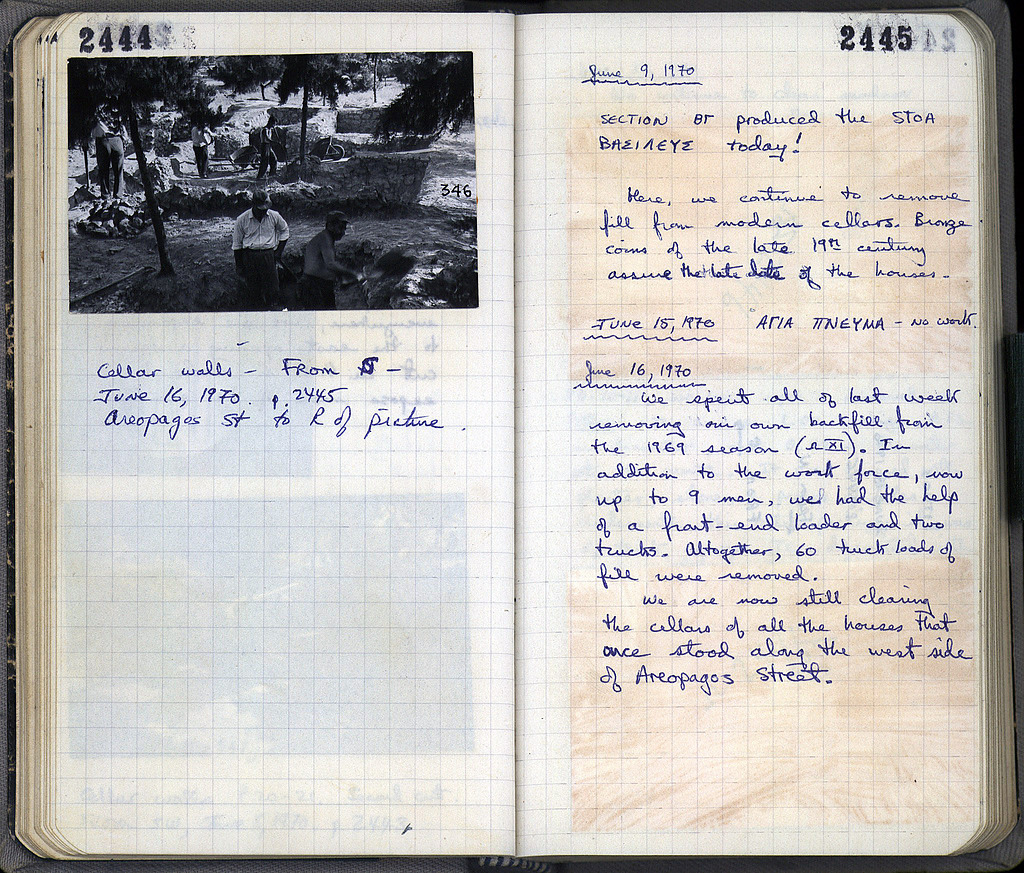 2444
346
Cellar walls – FROM S –
JUNE 16, 1970. p. 2445
Areopagos St to R of picture.
2445
June 9, 1970
SECTION BΓ produced the STOA
ΒΑΣΙΛΕΥΣ today!
Here, we continue to remove
fill from modern cellars. Bronze
coins of the late 19th century
assure the late date of the houses.
JUNE 15, 1970 ΑΓΙΑ ΠΝΕΥΜΑ – no work.
June 16, 1970
We spent all of last week
removing our own backfill from
the 1969 season (ΩXI). In
addition to the work force, now
up to 9 men, we had the help
of a front-end loader and two
trucks. Altogether, 60 truck loads of
fill were removed.
We are now still clearing
the cellars of all the houses that
once stood along the west side
of Areopagos Street.